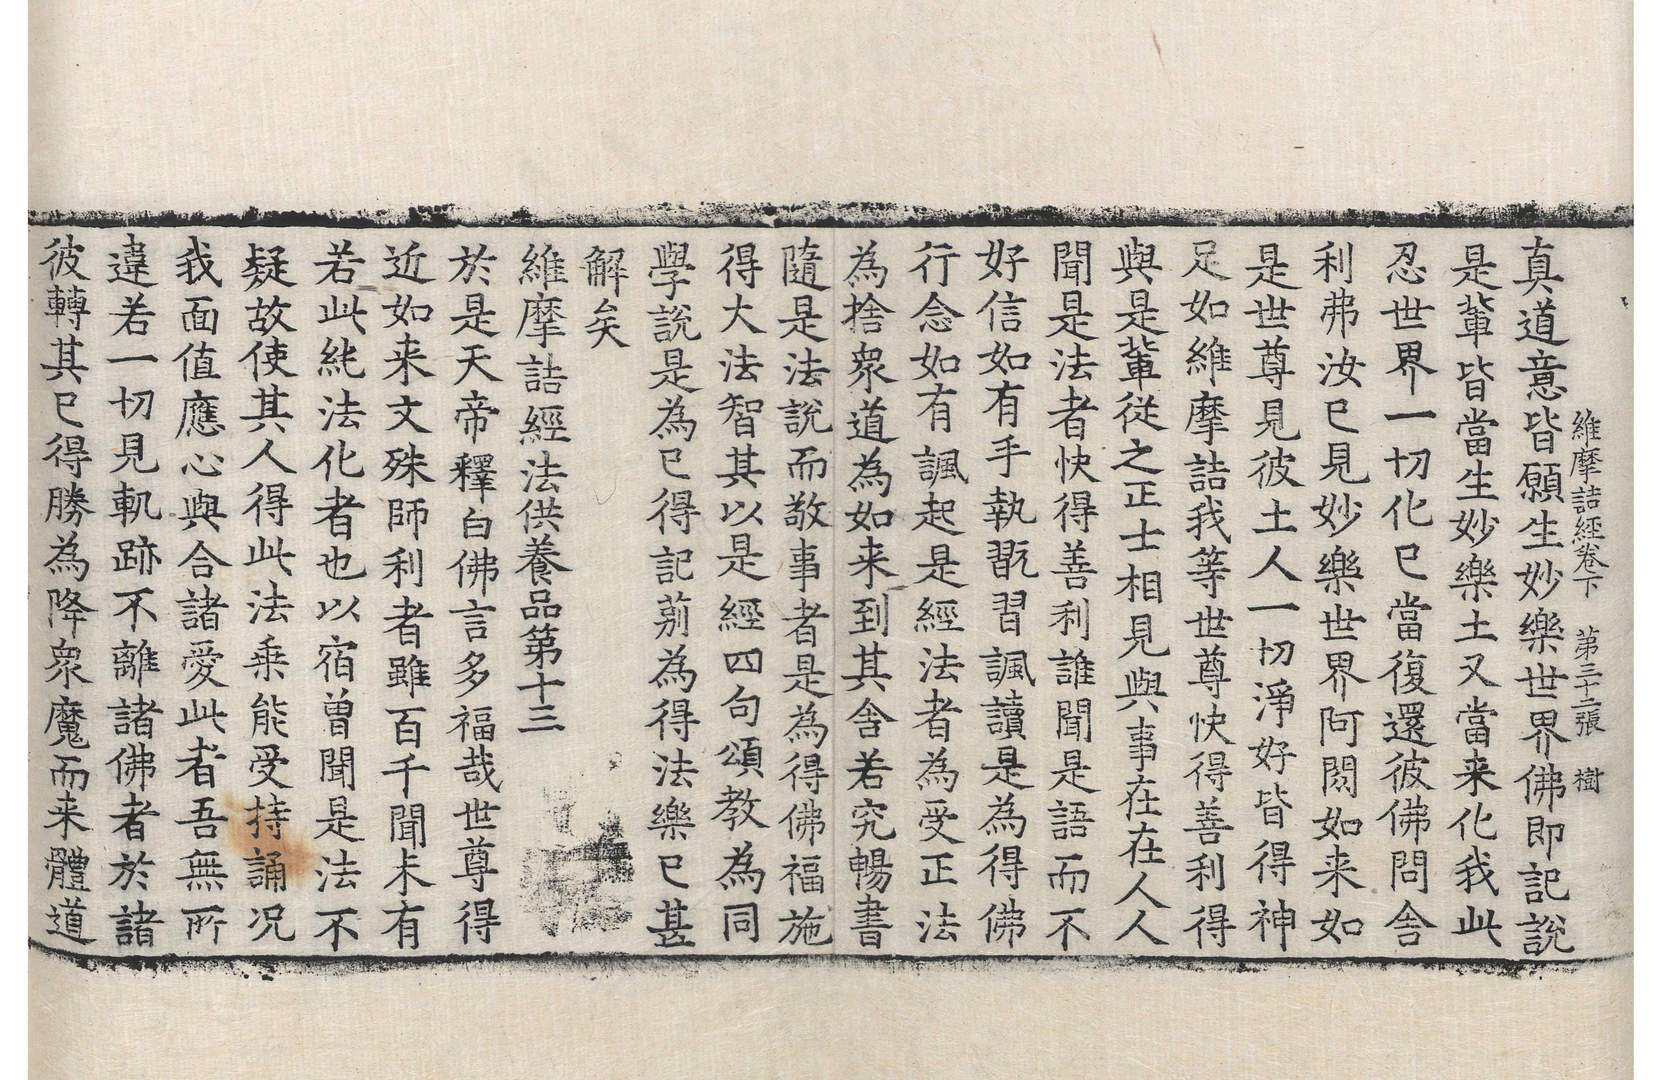 維摩詰經卷下 第三十二張 樹
真道意皆願生妙樂世界佛即記說
是輩皆當生妙樂土又當来化我此
忍世界一切化已當復還彼佛問舍
利弗汝已見妙樂世界阿閦如来如
是世尊見彼土人一切淨好皆得神
足如維摩詰我等世尊快得善利得
與是輩從之正士相見與事在在人人
聞是法者快得善利誰聞是語而不
好信如有手執翫習諷讀是為得佛
行念如有諷起是經法者為受正法
為捨衆道為如来到其舍若究暢書
隨是法說而敬事者是為得佛福施
得大法智其以是經四句頌教為同
學說是為已得記莂為得法樂已甚
解矣
維摩詰經法供養品第十三
於是天帝釋白佛言多福哉世尊得
近如来文殊師利者雖百千聞未有
若此純法化者也以宿曾聞是法不
疑故使其人得此法乘能受持誦况
我面值應心與合諸愛此者吾無所
違若一切見軌跡不離諸佛者於諸
彼轉其已得勝為降衆魔而来體道